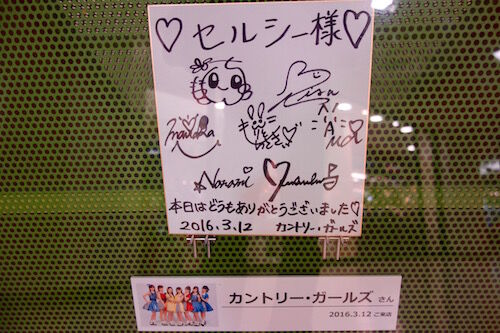 ♡セルシー様♡
Risa
Manaka
Nozomi
本日はどうもありがとうございました♡
2016.3.12 カントリー・ガールズ
カントリー・ガールズ さん
2016.3.12 ご来店